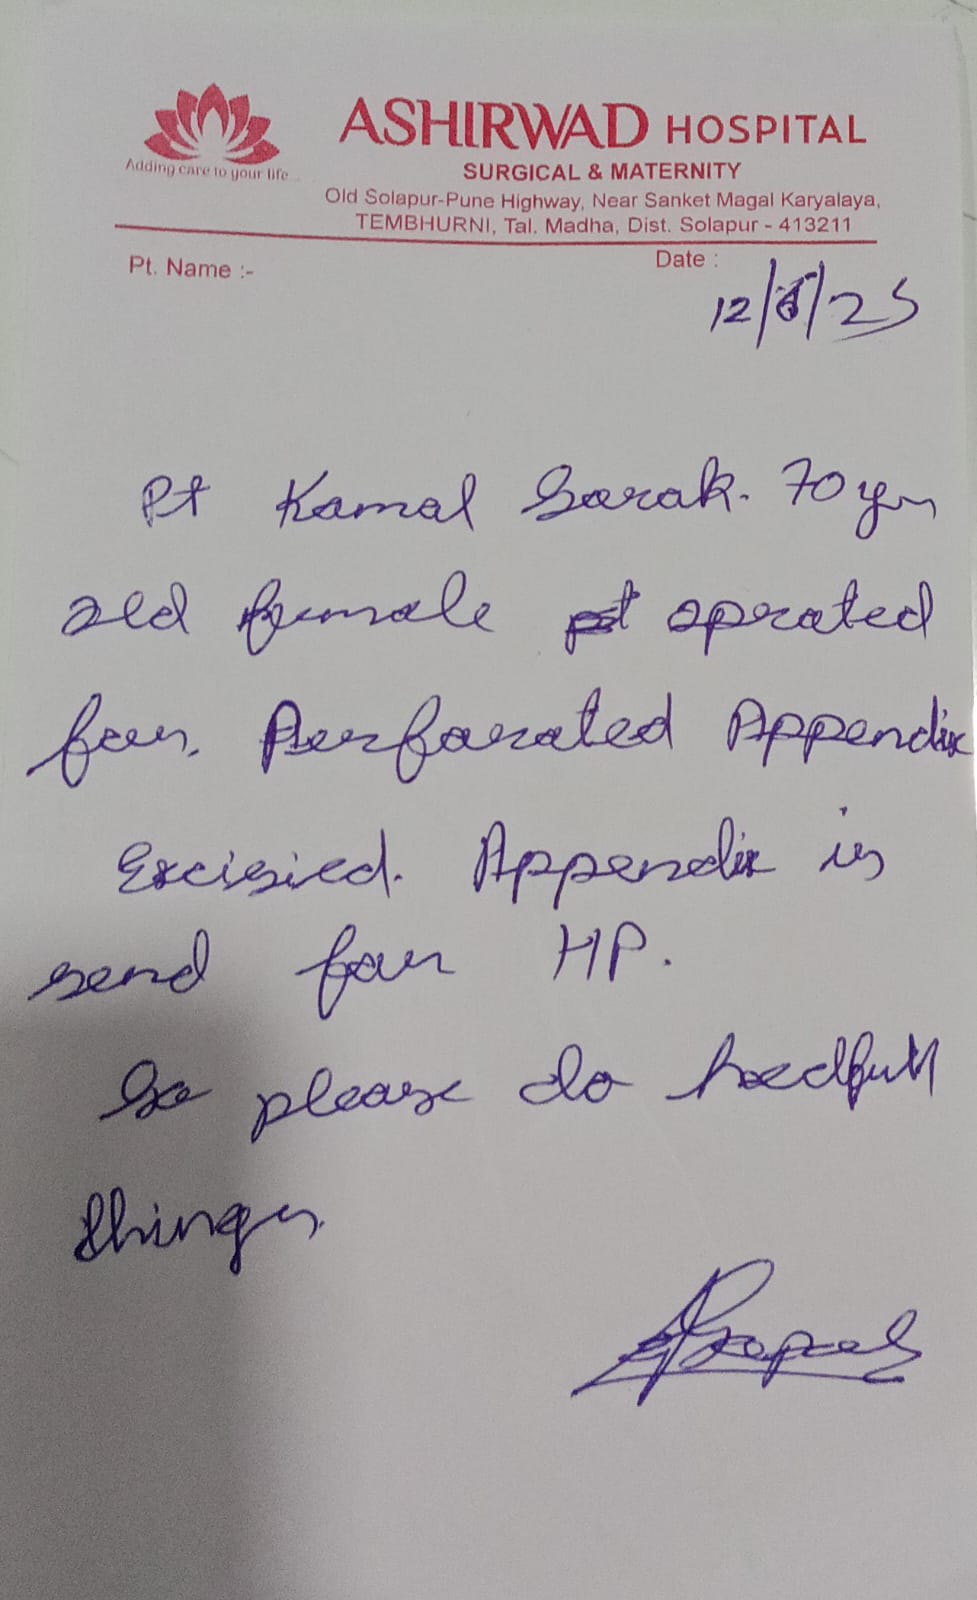 Adding care to your life...
ASHIRWAD HOSPITAL
SURGICAL & MATERNITY
Old Solapur-Pune Highway, Near Sanket Magal Karyalaya,
TEMBHURNI, Tal. Madha, Dist. Solapur - 413211
Pt. Name :-
Date :
12/ /25
Pt Kamal Sarak. 70 yrs
old female oprated
for. Perforated Appendix
Excisied. Appendix is
send for HP.
So please do
things